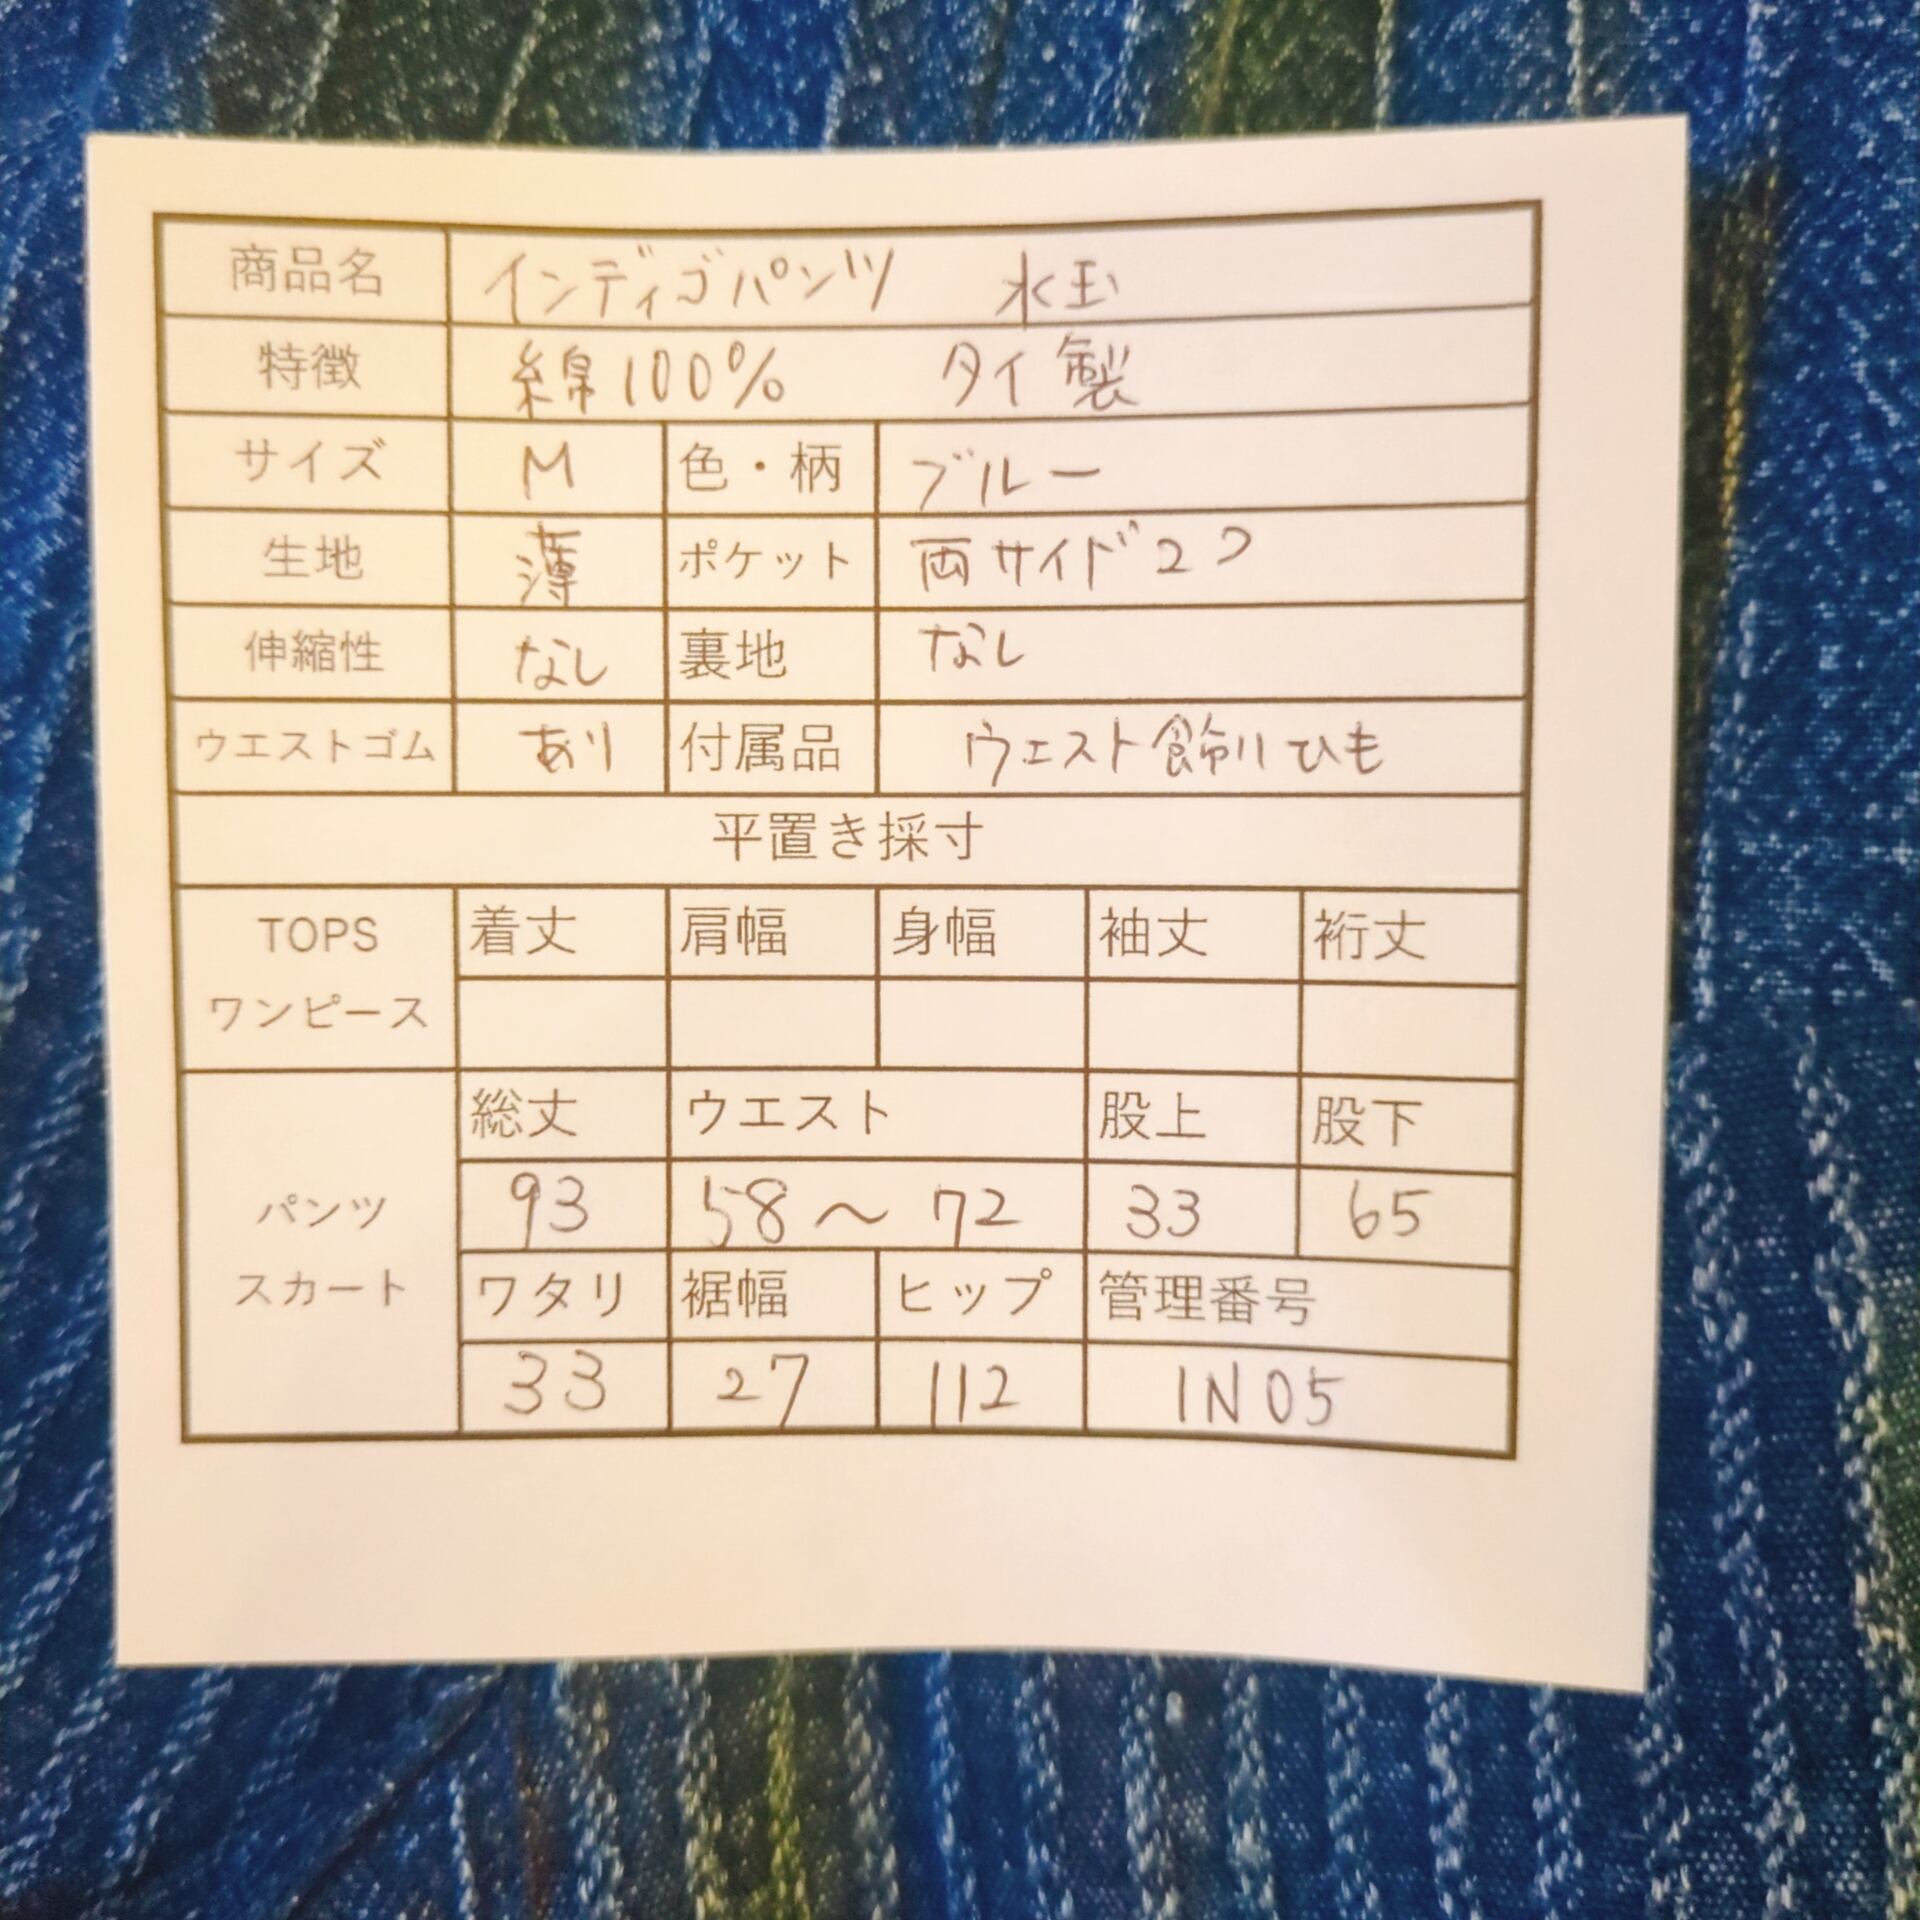 商品名 インディゴパンツ 水玉
特徴 綿100% タイ製
サイズ M 色・柄 ブルー
生地 薄 ポケット 両サイド2つ
伸縮性 なし 裏地 なし
ウエストゴム あり 付属品 ウエスト飾りひも
平置き採寸
TOPS 着丈 肩幅 身幅 袖丈 裄丈
ワンピース
総丈 ウエスト 股上 股下
パンツ 93 58～72 33 65
スカート ワタリ 裾幅 ヒップ 管理番号
33 27 112 IN05